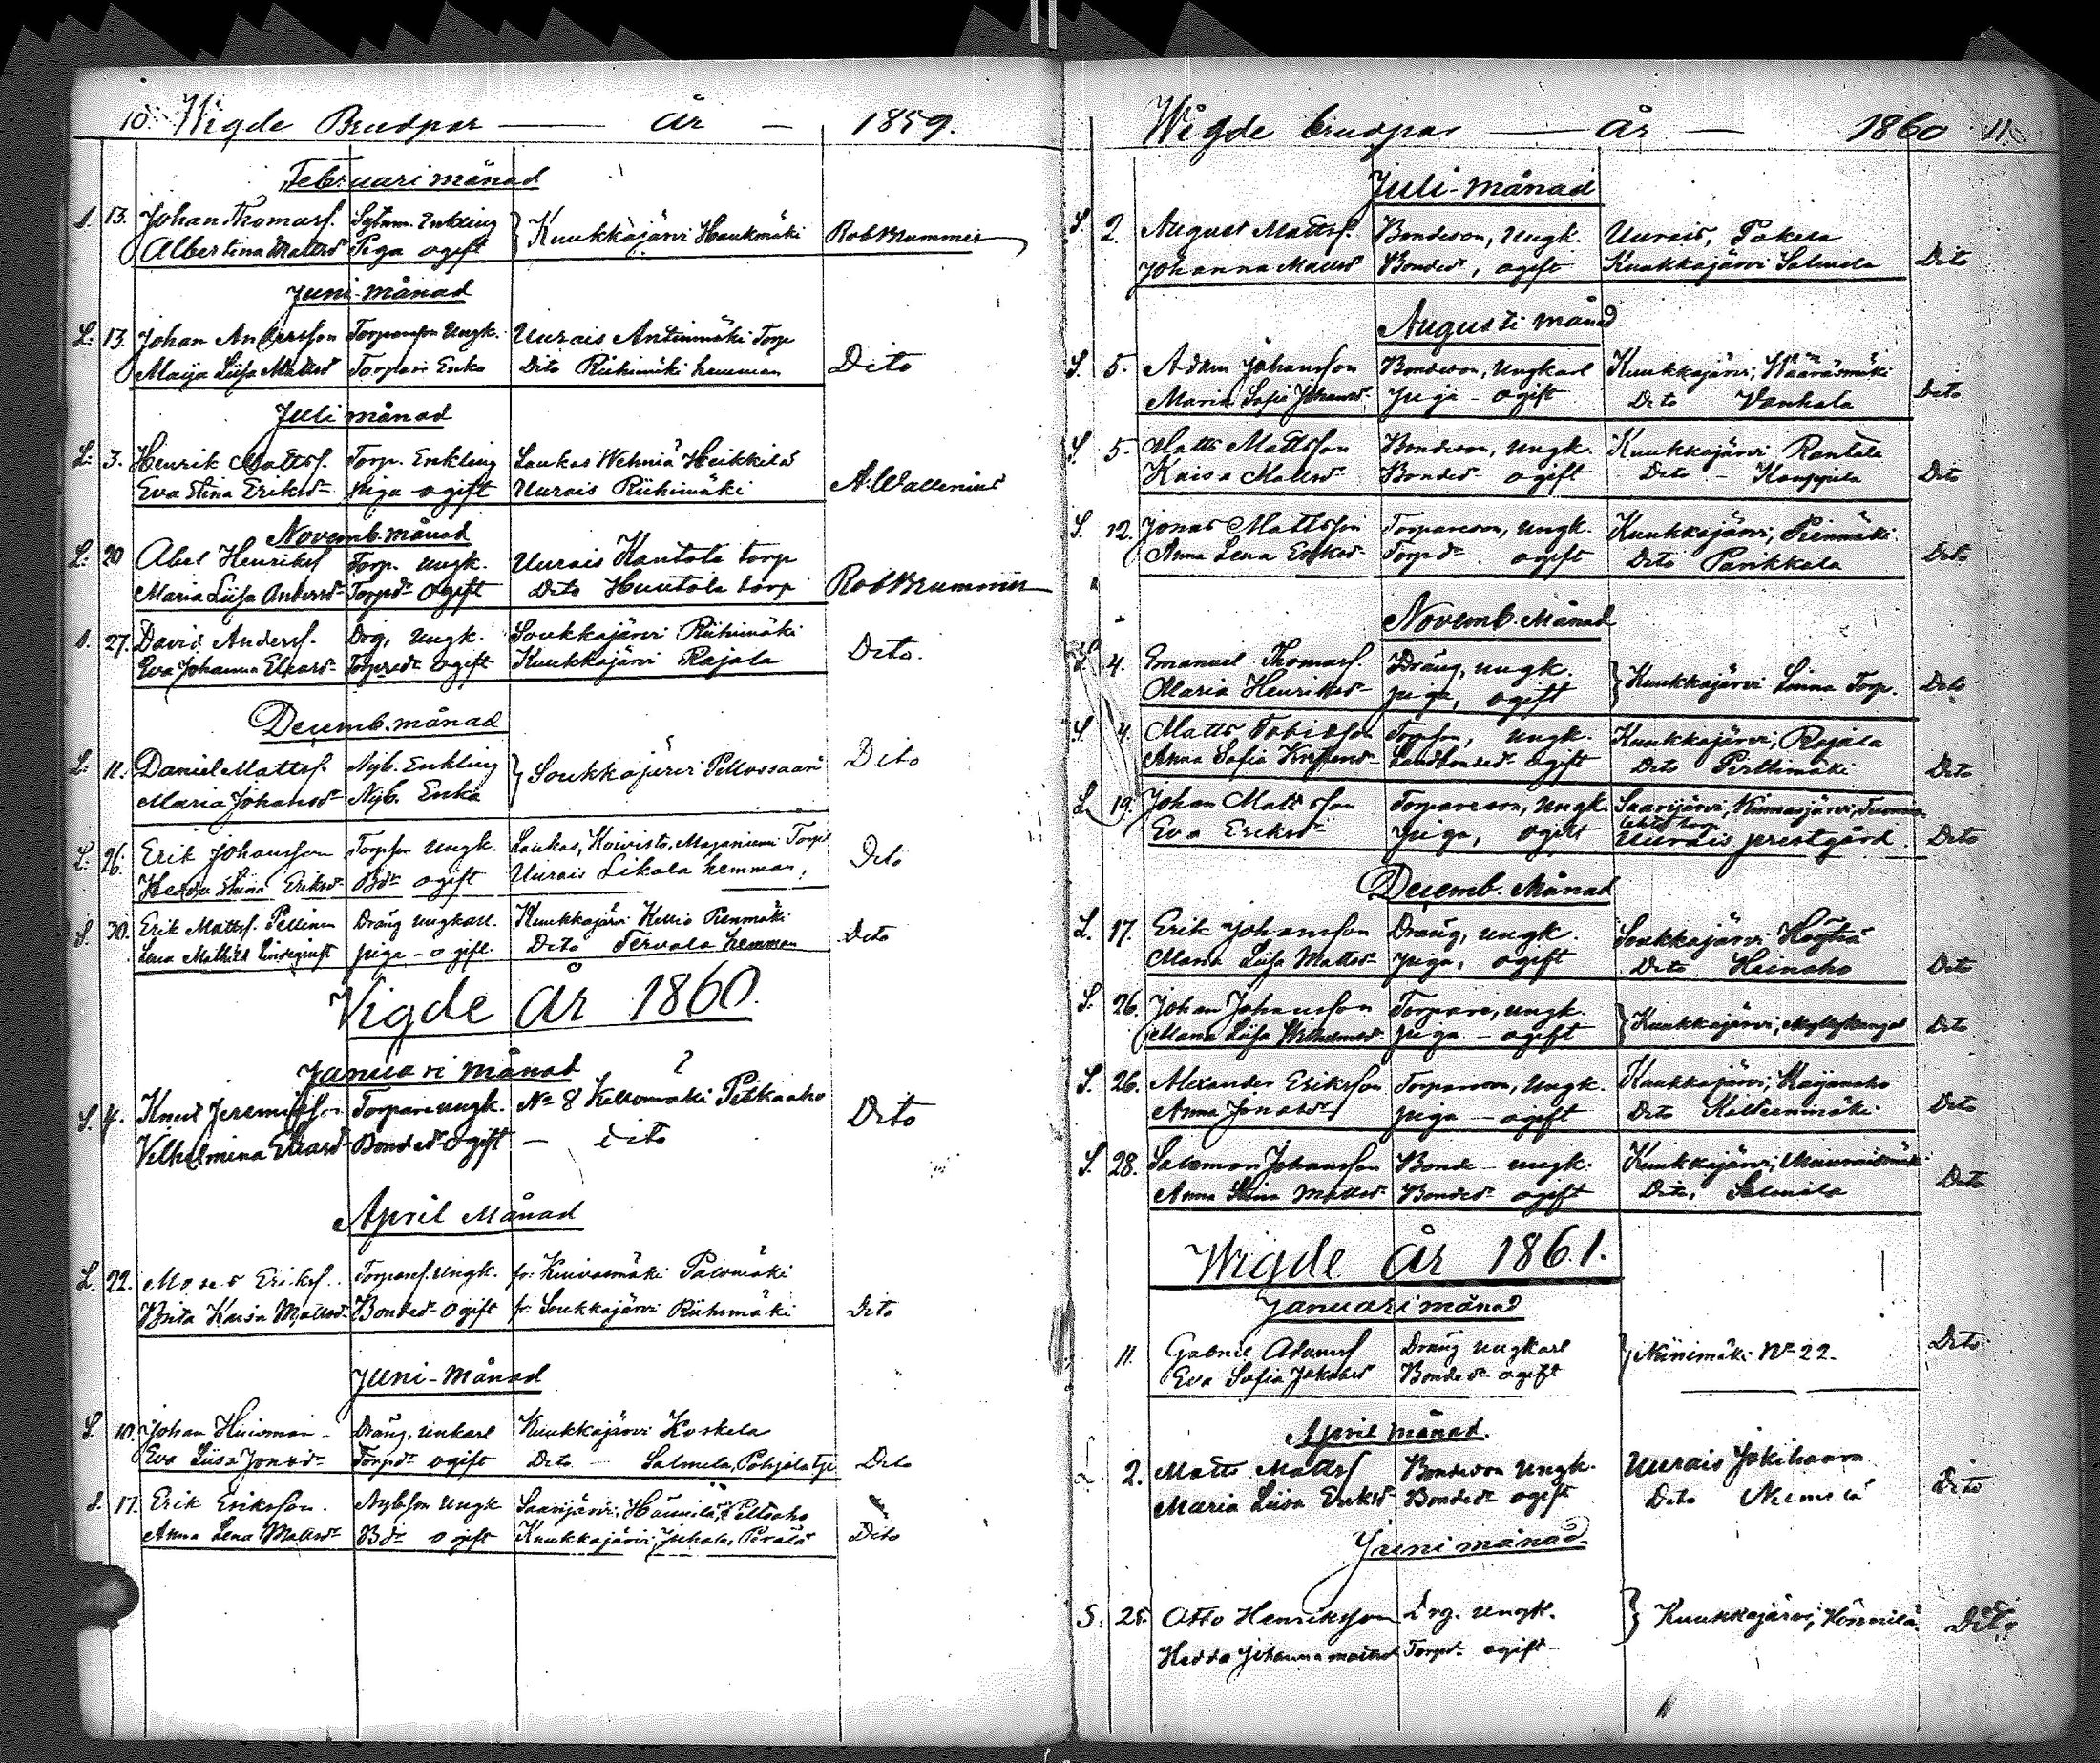 10. Wigde Brudpar — år — 1859.
Februari månad
S. 13. Johan Thomasf. Sytnm. Enkling } Kuukkajärvi Haukmäki Rob Brummer
Albertina Mattsdr Piga ogift
Juni månad
L: 13. Johan Andersson Torpareson Ungk. Uurais Antinmäki Torp
Maija Liisa Mattsd Torpari Enka Dito Riihimäki hemman Dito
Juli månad
L: 3. Henrik Mattsf. Torp. Enkling Laukas Wehniä Heikkilä
Eva Stina Eriksdr piga ogift Uurais Riihimäki A. Wallenius
Novemb. månad
L: 20 Abel Henriksf Torp. ungk. Uurais Kantola torp
Maria Liisa Andersdr Torpdr Ogift Dito Huutola torp Rob Brummer
S. 27. David Andersf. Drg, ungk. Soukkajärvi Riihimäki
Eva Johanna Eliasdr Torparedr ogift Kuukkajärvi Rajala Dito.
Decemb. månad
L: 11. Daniel Mattsf. Nyb. Enkling } Soukkajärvi Peltossaari Dito
Maria Johansdr Nyb. Enka
L: 26. Erik Johansson Torpson ungk. Laukas, Koivisto, Majaniemi Torp
Hedda Stina Eriksdr Bdr ogift Uurais Likola hemman, Dito
S. 30. Erik Mattsf. Pellinen Dräng ungkarl. Kuukkajärvi Kellio Pienmäki
Lena Mathild Lindqvist piga - ogift. Dito Tervala hemman Dito
Vigde År 1860.
Januari månad ?
S. 4. Knut Jeremiasson Torpare ungk. No 8 Kellomäki Pitkäaho Dito
Vilhelmina Eliasdr Bondedr ogift — dito
April Månad
L. 22. Moses Eriksf. Torparef. ungk. fr: Kuivasmäki Palomäki
Brita Kaisa Mattsdr Bondedr Ogift fr: Soukkajärvi Riihimäki Dito
Juni - Månad
S. 10. Johan Dräng, unkarl Kuukkajärvi Koskela
Eva Liisa Jonasdr Torpdr ogift Dito — Salmela, Pohjola Dito
S. 17. Erik Eriksson. Nybson ungk Saarijärvi, Hännilä, Peltoaho
Anna Lena Mattsdr Bdr ogift Kuukkajärvi, Juhola, Perälä Dito
Wigde brudpar — år — 1860 11.
Juli - månad
S. 2. August Mattsf. Bondeson, Ungk. Uurais, Pokela
Johanna Mattsdr Bondedr, ogift Kuukkajärvi Salmela Dito
Augusti månad
S. 5. Adam Johansson Bondeson, Ungkarl Kuukkajärvi, Wääräsmäki
Maria Sofia Johansdr piga - ogift Dito Vanhala Dito
S. 5. Matts Mattsson Bondeson, ungk. Kuukkajärvi Rantala
Kaisa Mattsdr Bondedr ogift Dito - Kauppila Dito
S. 12. Jonas Mattsson Torpareson, ungk. Kuukkajärvi, Pienmäki
Anna Lena Eriksdr Torpdr ogift Dito Pankkala Dito
Novemb. Månad
S. 4. Emanuel Thomasf. Dräng, ungk. } Kuukkajärvi Linna Torp. Dito
Maria Henriksdr piga, ogift
S. 4. Matts Tobiasson Torpson, ungk. Kuukkajärvi, Rajala
Anna Sofia Landbondedr ogift Dito Pirttimäki Dito
L. 19. Johan Mattsson Torpareson, ungk. Saarijärvi, Kiimasjärvi, Tuomen-
lehto torp
Eva Eriksdr piga, ogift Uurais prestgård Dito
Decemb. Månad
L. 17. Erik Johansson Dräng, ungk. Soukkajärvi Höytiä
Maria Liisa Mattsdr piga, ogift Dito Heinaho Dito
S. 26. Johan Johansson Torpare, ungk. } Kuukkajärvi, Myllykangas Dito
Maria Liisa Wilhelmsdr piga - ogift
S. 26. Alexander Eriksson Torpareson, ungk. Kuukkajärvi, Kaijanaho
Anna Jonasdr piga - ogift Dito Kolteenmäki Dito
S. 28. Salomon Johansson Bonde - ungk. Kuukkajärvi,
Anna Stina Mattsdr Bondedr ogift Dito, Salmela Dito
Wigde år 1861.
Januari månad
11. Gabriel Adamsf Dräng ungkarl } Niinimäki No 22. Dito
Eva Sofia Jakobsdr Bondedr ogift
April månad.
L. 2. Matts Mattsf Bondeson ungk. Uurais Jokihaara
Maria Liisa Eriksdr Bondedr ogift Dito Niemelä Dito
Juni månad.
S. 25. Otto Henriksson drg. ungk. } Kuukkajärvi, Hännilä Dito
Hedda Johanna Mattsd Torpdr ogift